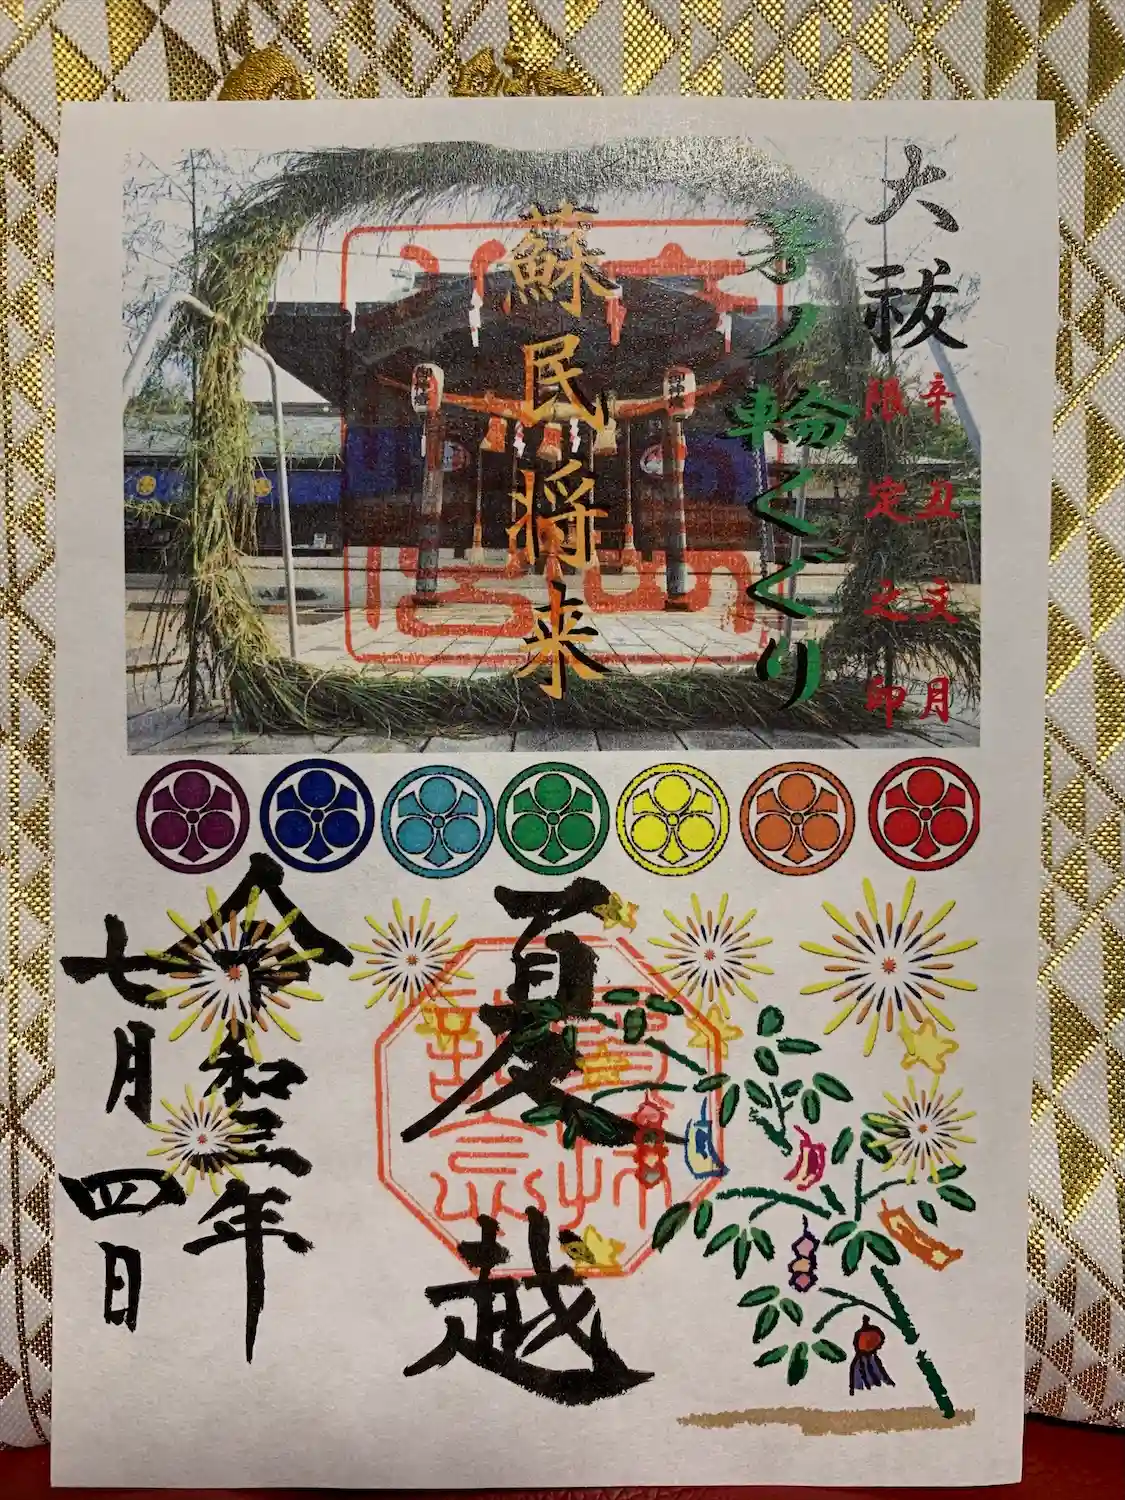 大祓
辛丑文月
限定之印
茅ノ輪くぐり
蘇民将来
夏越
令和三年
七月四日